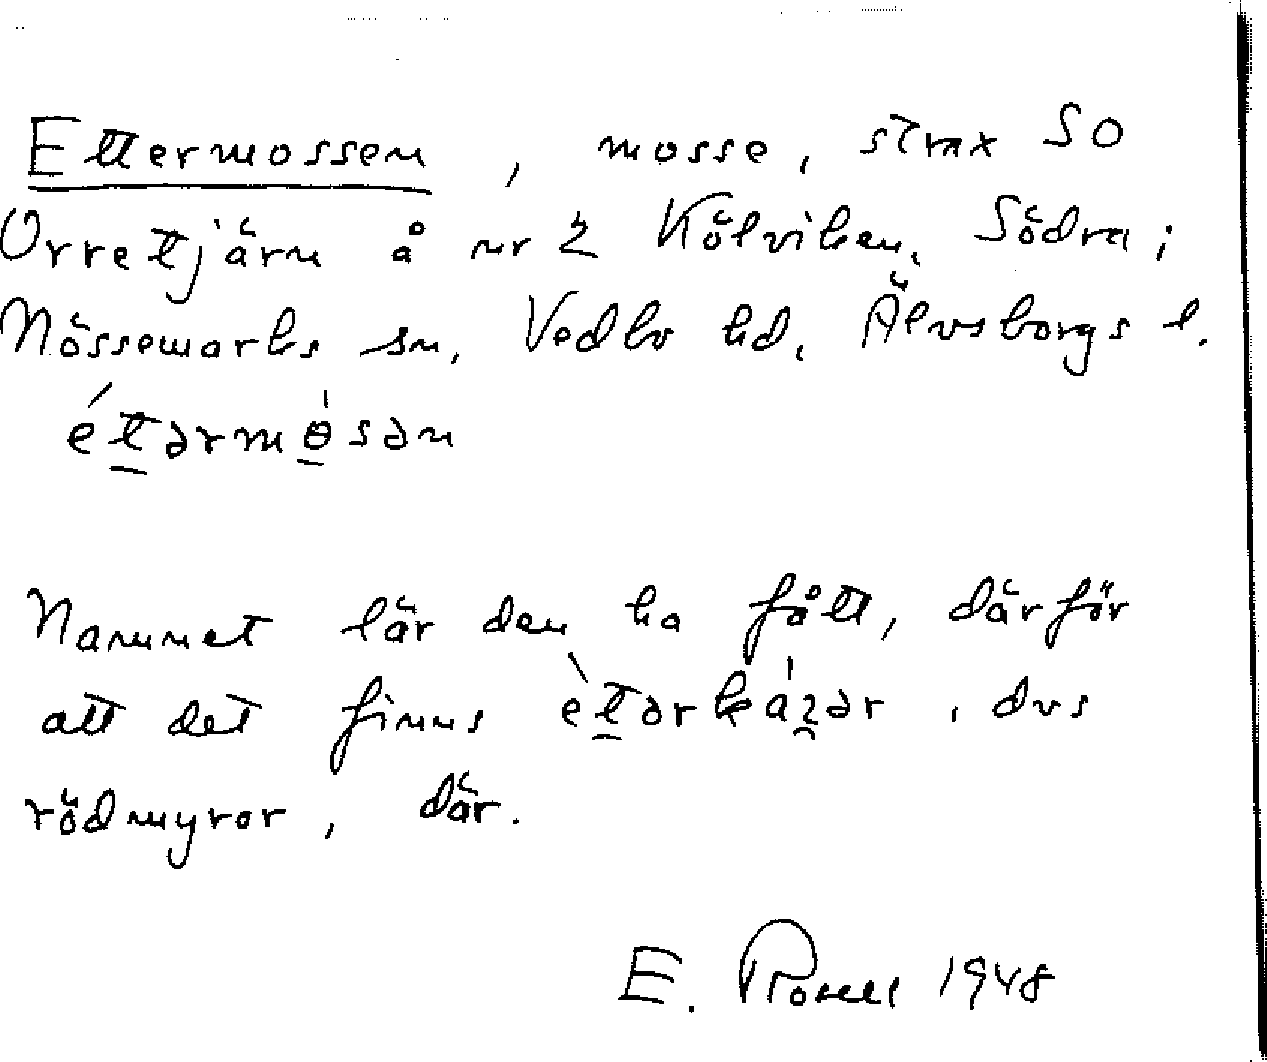 Ettermossen, mosse, strax SO
Orretjärn å nr 2 Kölviken, Södra i
Nössemarks sn, Vedbo hd, Älvsborgs l.
éttərmɵ̀sən
Namnet lär den ha fått, därför
att det finns , dvs
rödmyror, där.
E. 1948